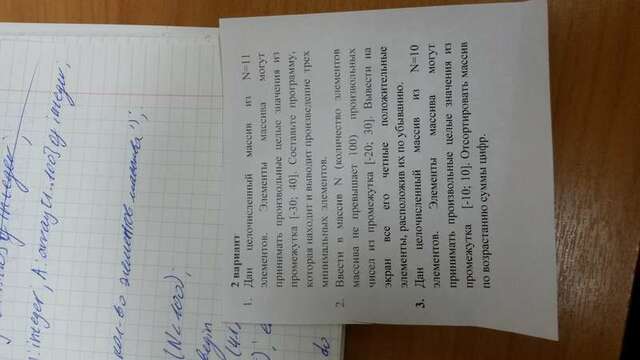 2 вариант
1. Дан целочисленный массив из N=11
элементов. Элементы массива могут
принимать произвольные целые значения из
промежутка [-30; 40]. Составьте программу,
которая находит и выводит произведение трех
минимальных элементов.
2. Ввести в массив N (количество элементов
массива не превышает 100) произвольных
чисел из промежутка [-20; 30]. Вывести на
экран все его четные положительные
элементы, расположив их по убыванию.
3. Дан целочисленный массив из N=10
элементов. Элементы массива могут
принимать произвольные целые значения из
промежутка [-10; 10]. Отсортировать массив
по возрастанию суммы цифр.
integer; A: array [1..100] of integer;
кол-во элементов массива');
(N<=100);